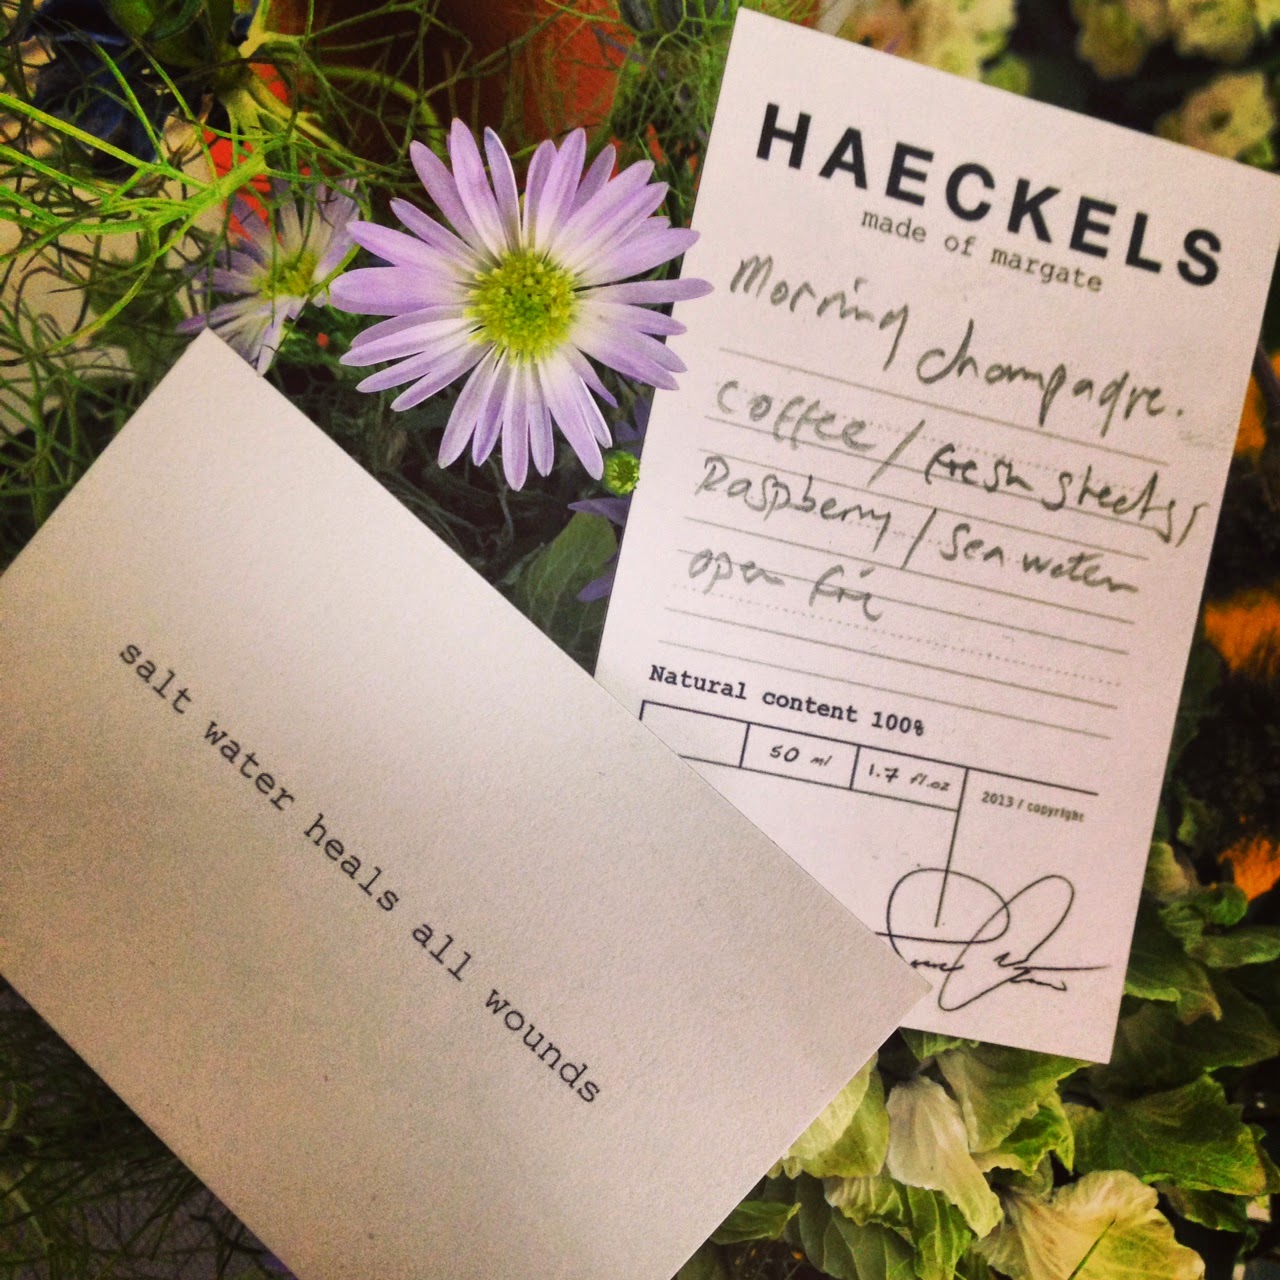 HAECKELS
made of margate
Morning champagne.
Coffee / fresh sheets /
Raspberry / Sea water
open fire
Natural content 100%
50 ml
1.7 fl.oz
2013 / copyright
salt water heals all wounds